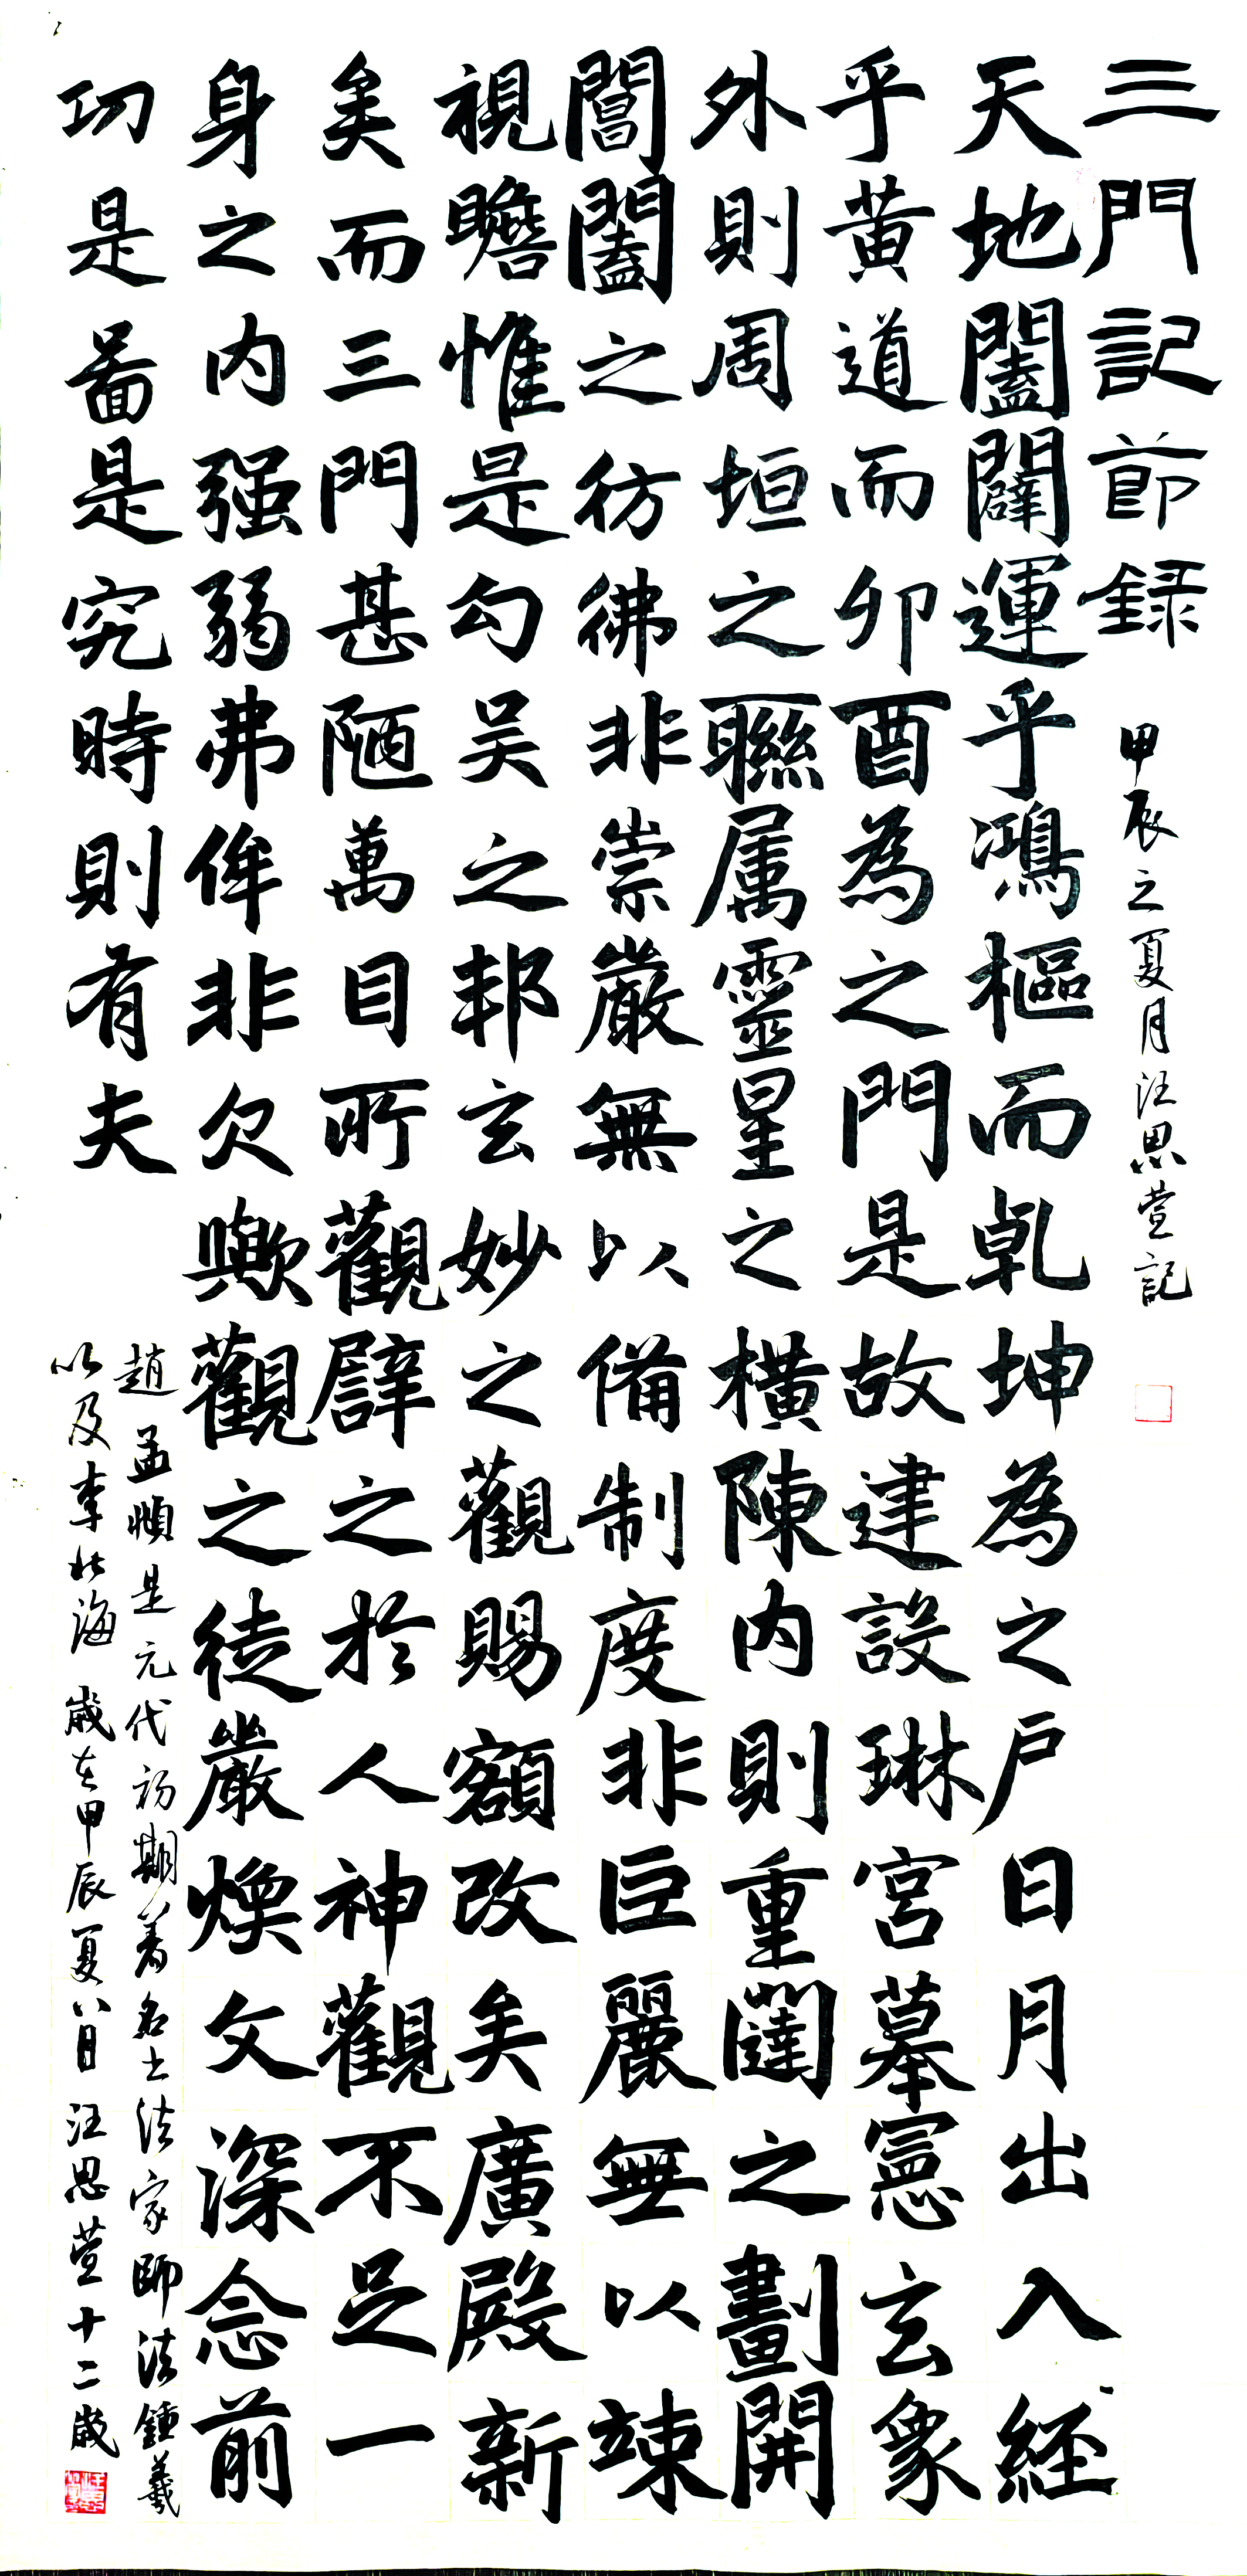 三門記節録
甲辰之夏月汪思萱記
天地闔闢運乎鴻樞而乾坤為之户日月出入經
乎黄道而卯酉為之門是故建設琳宮摹憲玄象
外則周垣之聯属靈星之橫陳内則重闥之劃開
閶闔之彷彿非崇嚴無以備制度非巨麗無以竦
視瞻惟是勾吴之邦玄妙之觀賜額改矣廣殿新
矣而三門甚陋萬目所觀譬之於人神觀不足一
身之内强弱弗侔非欠歟觀之徒嚴煥文深念前
功是啚是究時則有夫
趙孟頫是元代初期著名书法家師法鍾羲
以及李北海 歲在甲辰夏八日汪思萱十二歲